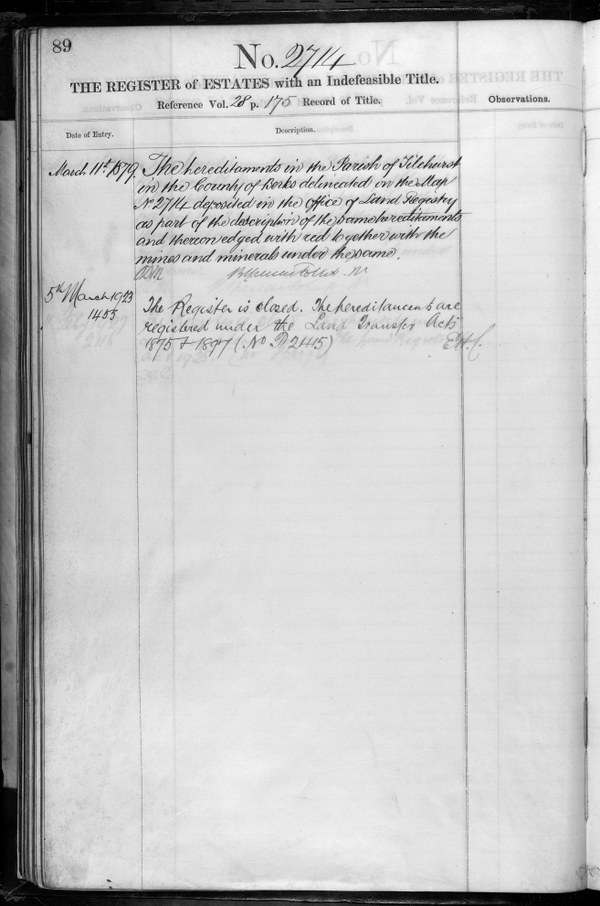 89
No. 2714
THE REGISTER of ESTATES with an Indefeasible Title.
Reference Vol. 28 p. 175 Record of Title.
Observations.
Date of Entry.
Description.
March 11th 1879. The hereditaments in the Parish of Tilehurst
in the County of Berks delineated on the Map
No 2714 deposited in the office of Land Registry
as part of the description of the same hereditaments
and thereon edged with red together with the
mines and minerals under the same.
5th March 1923
1455
The Register is closed. The hereditaments are
registered under the Land Transfer Acts
1875 & 1897 (No P 2445) E.H.C.